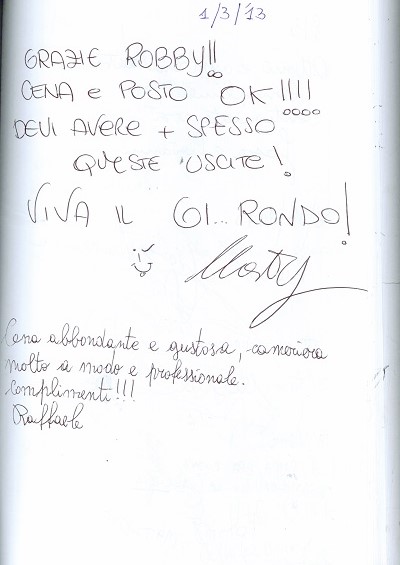 1/3/'13
GRAZIE ROBBY!!
CENA e POSTO OK !!!!
DEVI AVERE + SPESSO
QUESTE USCITE!
VIVA IL GI... RONDO!
Marty
Cena abbondante e gustosa, cameriera
molto a modo e professionale.
Complimenti!!!
Raffaele